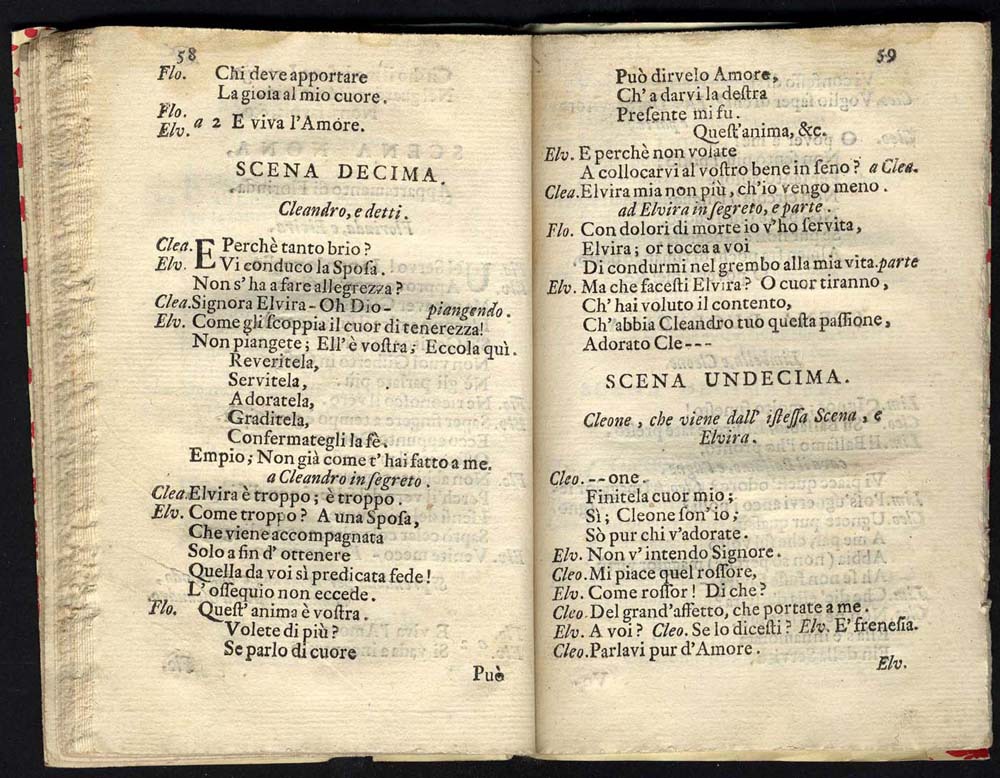 58
Flo. Chi deve apportare
La gioia al mio cuore.
Flo.
Elv. a 2 E viva l'Amore.
SCENA DECIMA.
Cleandro, e detti.
Clea. E Perchè tanto brio?
Elv. Vi conduco la Sposa.
Non s'ha a fare allegrezza?
Clea. Signora Elvira - Oh Dio - piangendo.
Elv. Come gli scoppia il cuor di tenerezza!
Non piangete; Ell'è vostra; Eccola quì.
Reveritela,
Servitela,
Adoratela,
Graditela,
Confermategli la fè.
Empio; Non già come t'hai fatto a me.
a Cleandro in segreto.
Clea. Elvira è troppo; è troppo.
Elv. Come troppo? A una Sposa,
Che viene accompagnata
Solo a fin d'ottenere
Quella da voi sì predicata fede!
L'ossequio non eccede.
Flo. Quest'anima è vostra.
Volete di più?
Se parlo di cuore
Può
59
Può dirvelo Amore,
Ch'a darvi la destra
Presente mi fu.
Quest'anima, &c.
Elv. E perchè non volate
A collocarvi al vostro bene in seno? a Clea.
Clea. Elvira mia non più, ch'io vengo meno.
ad Elvira in segreto, e parte.
Flo. Con dolori di morte io v'ho servita,
Elvira; or tocca a voi
Di condurmi nel grembo alla mia vita. parte
Elv. Ma che facesti Elvira? O cuor tiranno,
Ch'hai voluto il contento,
Ch'abbia Cleandro tuo questa passione,
Adorato Cle---
SCENA UNDECIMA.
Cleone, che viene dall'istessa Scena, e
Elvira.
Cleo. --one.
Finitela cuor mio;
Sì; Cleone son'io;
Sò pur chi v'adorate.
Elv. Non v'intendo Signore.
Cleo. Mi piace quel rossore,
Elv. Come rossor! Di che?
Cleo. Del grand'affetto, che portate a me.
Elv. A voi? Cleo. Se lo dicesti? Elv. E' frenesia.
Cleo. Parlavi pur d'Amore.
Elv.